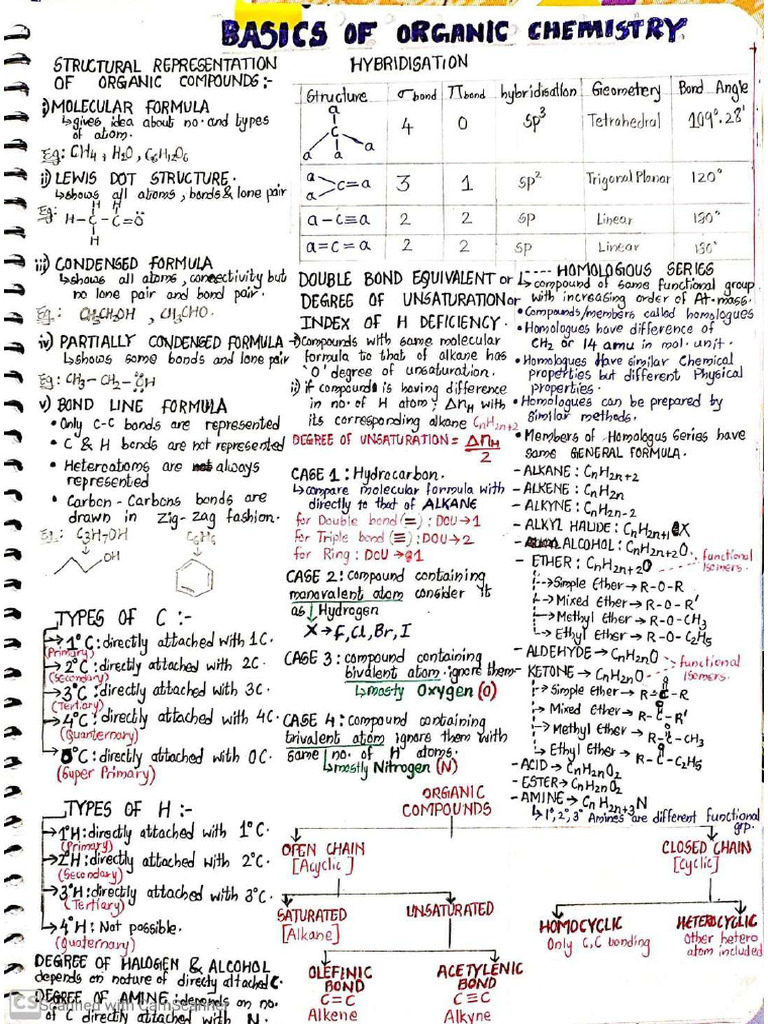 BASICS OF ORGANIC CHEMISTRY
STRUCTURAL REPRESENTATION
OF ORGANIC COMPOUNDS:-
i) MOLECULAR FORMULA
↳gives idea about no. and types
of atom.
Eg: CH4, H2O, C6H12O6
ii) LEWIS DOT STRUCTURE.
↳shows all atoms, bonds & lone pair
Eg:
H H
H-C-C=Ö
H
iii) CONDENSED FORMULA
↳shows all atoms, conectivity but
no lone pair and bond pair.
Eg: CH3CH2OH, CH3CHO.
iv) PARTIALLY CONDENSED FORMULA
↳shows some bonds and lone pair
Eg: CH3-CH2-ÖH
v) BOND LINE FORMULA
• Only C-C bonds are represented
• C & H bonds are not represented
• Heteroatoms are always
represented
• Carbon-Carbons bonds are
drawn in Zig-Zag fashion.
Eg: C3H7OH C6H6
OH
TYPES OF C :-
→1°C: directly attached with 1C.
(Primary)
→2°C: directly attached with 2C.
(Secondary)
→3°C: directly attached with 3C.
(Tertiary)
→4°C: directly attached with 4C.
(Quanternary)
→0°C: directly attached with 0C.
(Super Primary)
TYPES OF H :-
→1°H: directly attached with 1°C.
(Primary)
→2°H: directly attached with 2°C.
(Secondary)
→3°H: directly attached with 3°C.
(Tertiary)
→4°H: Not possible.
(Quaternary)
DEGREE OF HALOGEN & ALCOHOL
depends on nature of directly attached C.
DEGREE OF AMINE: depends on no.
of C directly attached with N.
HYBRIDISATION
Structure σbond πbond hybridisation Geometery Bond Angle
a
C
a a a
4 0 sp3 Tetrahedral 109°.28'
a
a >C=a 3 1 sp2 Trigonal Planar 120°
a-C≡a 2 2 sp Linear 180°
a=C=a 2 2 sp Linear 180°
DOUBLE BOND EQUIVALENT or
DEGREE OF UNSATURATION or
INDEX OF H DEFICIENCY.
i) Compounds with same molecular
formula to that of alkane has
'0' degree of unsaturation.
ii) if compound is having difference
in no. of H atom; ΔnH with
its corresponding alkane CnH2n+2
DEGREE OF UNSATURATION = ΔnH/2
CASE 1: Hydrocarbon.
↳compare molecular formula with
directly to that of ALKANE
for Double bond (=): DOU→1
for Triple bond (≡): DOU→2
for Ring: DOU→1
CASE 2: compound containing
monovalent atom consider it
as Hydrogen
X→F, Cl, Br, I
CASE 3: compound containing
bivalent atom ignore them
↳mostly Oxygen (O)
CASE 4: compound containing
trivalent atom ignore them with
same no. of H atoms.
↳mostly Nitrogen (N)
HOMOLOGIOUS SERIES
↳compound of same functional group
with increasing order of At-mass.
• Compounds/members called homologues
• Homologues have difference of
CH2 or 14 amu in mol. unit.
• Homologues have similar Chemical
properties but different Physical
properties.
• Homologues can be prepared by
similar methods.
• Members of Homologus Series have
same GENERAL FORMULA.
- ALKANE: CnH2n+2
- ALKENE: CnH2n
- ALKYNE: CnH2n-2
- ALKYL HALIDE: CnH2n+1X
- ALCOHOL: CnH2n+2O
- ETHER: CnH2n+2O
functional
isomers.
→Simple Ether→R-O-R
→Mixed Ether→R-O-R'
→Methyl Ether→R-O-CH3
→Ethyl Ether→R-O-C2H5
- ALDEHYDE→CnH2nO
- KETONE→CnH2nO
functional
isomers.
→Simple Ether→R-C-R
→Mixed Ether→R-C-R'
→Methyl Ether→R-C-CH3
→Ethyl Ether→R-C-C2H5
- ACID→CnH2nO2
- ESTER→CnH2nO2
- AMINE→CnH2n+3N
↳1°, 2°, 3° Amines are different functional
grp.
ORGANIC
COMPOUNDS
OPEN CHAIN
[Acyclic]
CLOSED CHAIN
[Cyclic]
SATURATED
[Alkane]
UNSATURATED
HOMOCYCLIC
Only C,C bonding
HETEROCYCLIC
Other hetero
atom included
OLEFINIC
BOND
C=C
Alkene
ACETYLENIC
BOND
C≡C
Alkyne
CS Scanned with CamScanner